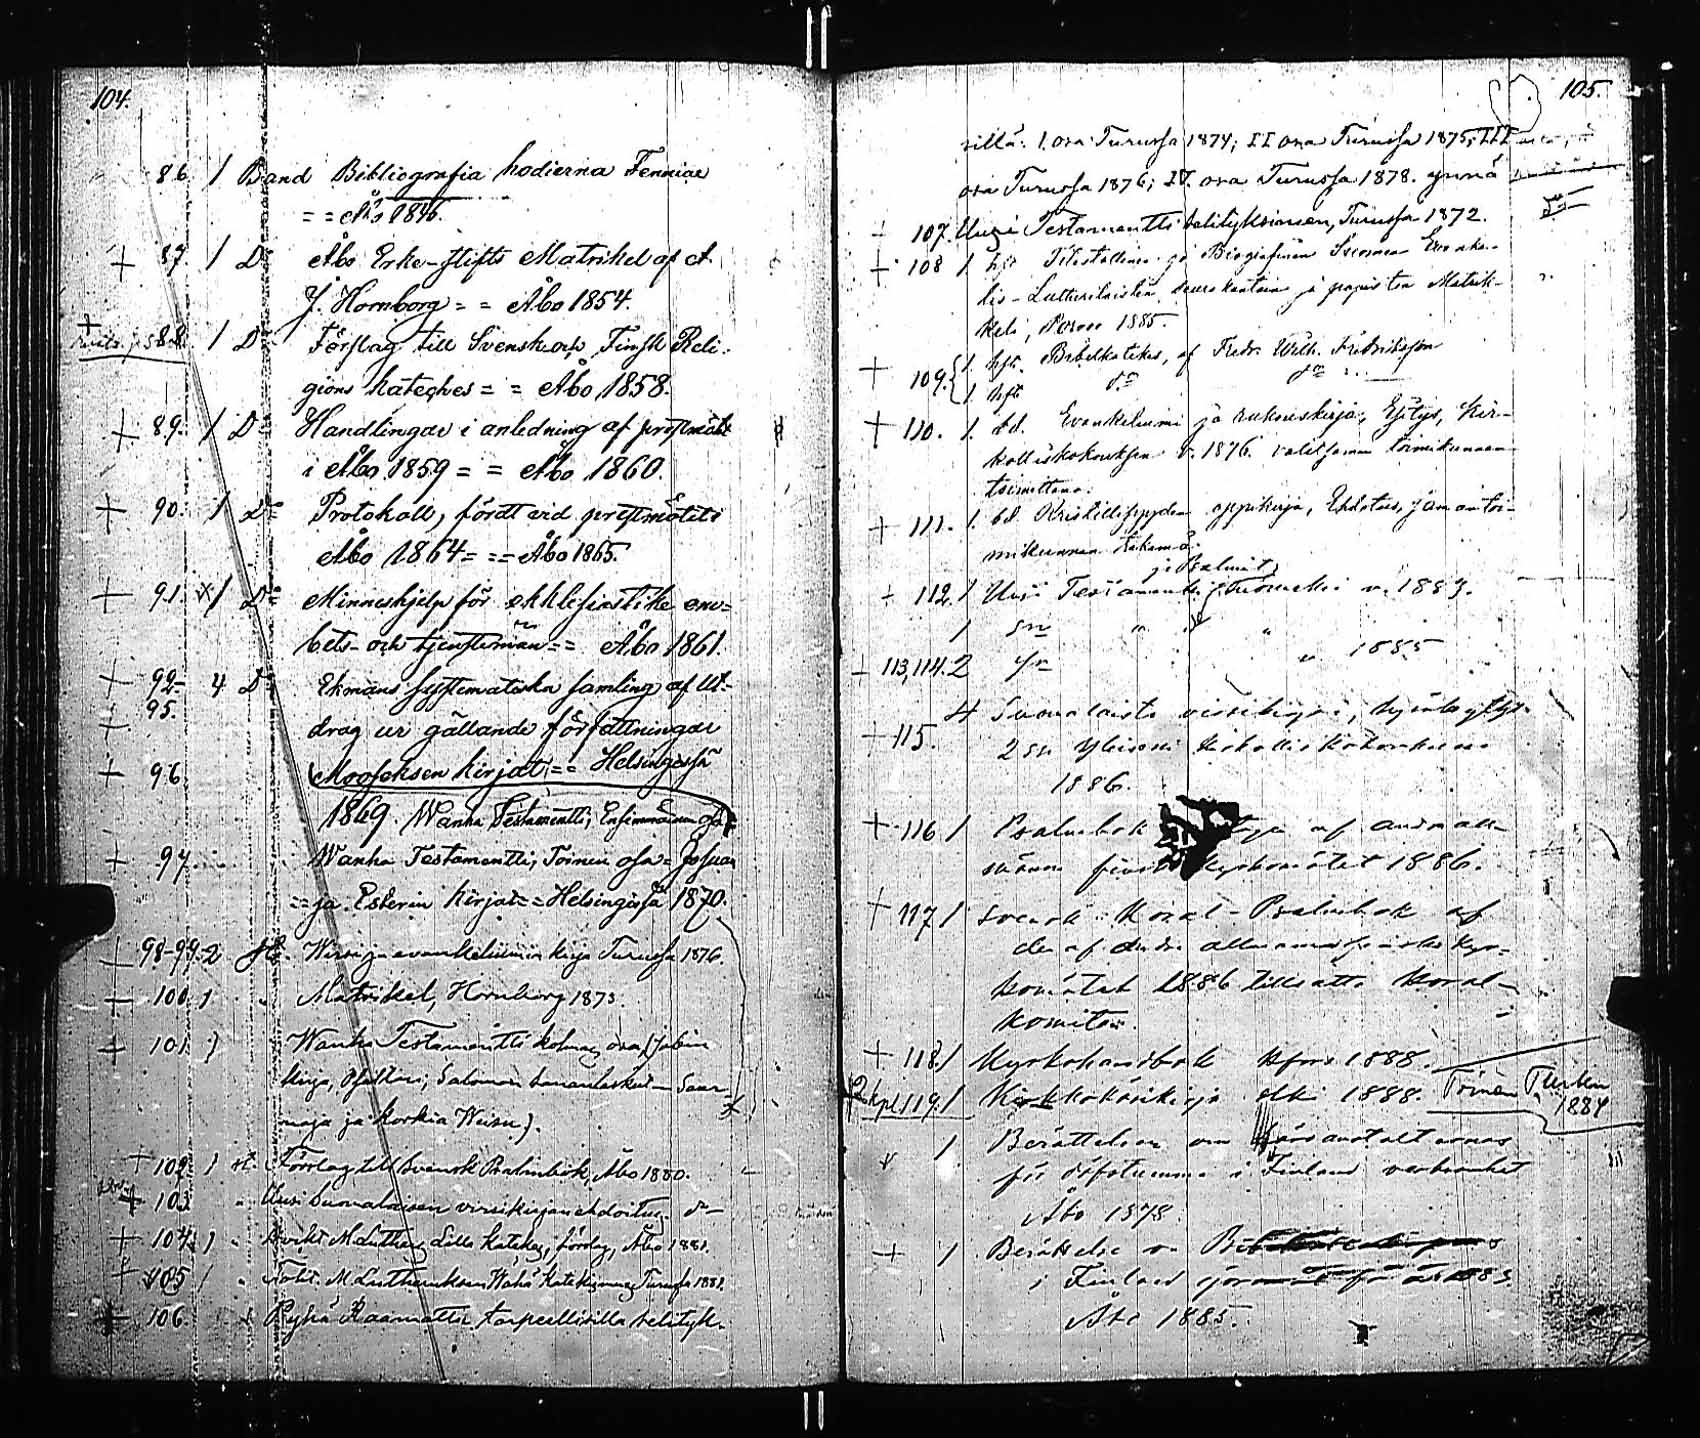 104.
86. 1 Band Bibliografia hodierna Fenniae
= = Åbo 1846.
+ 87. 1 Dº Åbo Erke-stifts Matrikel af A.
J. Hornborg = = Åbo 1854.
+ 88. 1 Dº Förslag till Svensk och Finsk Reli-
gions kateches = = Åbo 1858.
+ 89. 1 Dº Handlingar i anledning af prestmötet
i Åbo 1859 = = Åbo 1860.
+ 90. 1 Dº Protokoll, fördt vid prestmötet i
Åbo 1864 = = = Åbo 1865.
+ 91. 1 Dº Minneshjelp för ekklesiastike em-
bets- och tjensteman = = Åbo 1861.
+ 92- 4 Dº Ekmans systematiska samling af Ut-
+ 95. drag ur gällande författningar
+ 96 Mooseksen kirjat = = Helsingissä
1869. Wanha Testamentti, Ensimmäinen osa
+ 97 Wanha Testamentti, Toinen osa = Josuan
= = ja Esterin kirjat = = Helsingissä 1870.
+ 98-99. 2 Wirsi ja evankeliumin kirja Turussa 1876.
100. 1 Matrikel, Hornborg 1873.
+ 101. 1 Wanha Testamentti kolmas osa (Jobin
kirja, Psaltari, Salomon sananlaskut - Saar-
naaja ja Korkia Weisu).
+ 102 1 Förslag till Svensk Psalmbok, Åbo 1880.
+ 103 " Uusi Suomalaisen virsikirjan ehdoitus dº
+ 104 1 " M Luthers Lilla Katekes, förslag, Åbo 1881.
+ 105 1 " M Lutheruksen Wähä Katekismus, Turussa 1881.
+ 106. Pyhä Raamattu tarpeellisilla selityk-
105.
sillä: I. osa Turussa 1874; II osa Turussa 1875; III
osa Turussa 1876; IV. osa Turussa 1878. ynnä
107. Uusi Testamentti selityksineen, Turussa 1872.
+ 108 1. hft Tilastollinen ja Biografinen Suomen Evanke-
lis-Lutherilaisten seurakuntain ja papiston Matrik-
keli, Porvoo 1885.
+ 109. { 1. hft. Bibelkatekes, af Fredr. Wilh. Fredriksson
1 hft dº dº
+ 110. 1. bd. Evankeliumi ja rukouskirja, Esitys, Kir-
kolliskokouksen v. 1876 valitseman toimikunnan
toimittama.
+ 111. 1. bd Kristillisyyden oppikirja, Ehdotus, saman toi-
mikunnan tekemä.
ja Psalmit
+ 112. 1 Uusi Testamentti, Suomeksi v. 1883.
1 sn " " "
+ 113, 114. 2 sn " 1885
+ 115. 4 Suomalaista virsikirja, hyväksytys-
2 sn Yleisessä Kirkolliskokouksessa
1886.
+ 116 1 Psalmbok af andra all-
männa finska Kyrkomötet 1886.
+ 117 1 Svensk Koral-Psalmbok af
den af andra allmänna finska kyr-
komötet 1886 tillsatta Koral-
komitén.
+ 118. 1 Kyrkohandbok Hfors 1888.
2 kpl 119. 1 Kirkkokäsikirja 1888. Toinen Turku
1884
1 Berättelse om läroanstalterna
för döfstumma i Finland verksamhet
Åbo 1878.
+ 1 Berättelse
i Finland
Åbo 1885.